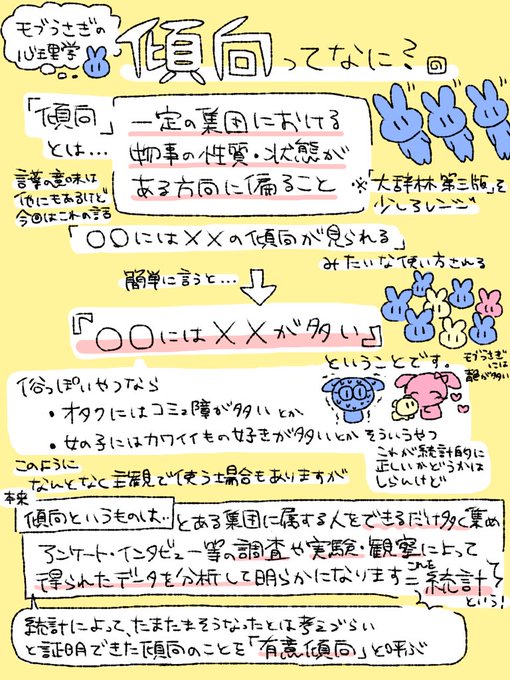 モブうさぎの
心理学
傾向ってなに?
「傾向」
とは…
一定の集団における
物事の性質・状態が
ある方向に偏ること
言葉の意味は
他にもあるけど
今回はこれの話
※「大辞林 第三版」を
少しアレンジ
「〇〇には××の傾向が見られる」
みたいな使い方される
簡単に言うと…
『〇〇には××が多い』
ということです。
モブうさぎ
には
青色が多い
俗っぽいやつなら
・オタクにはコミュ障が多い とか
・女の子にはカワイイもの好きが多いとか そういうやつ
これが統計的に
正しいかどうかは
しらんけど
このように
なんとなく主観で使う場合もありますが
本来
傾向というものは…
とある集団に属する人をできるだけ多く集め
アンケート・インタビュー等の調査や実験・観察によって
得られたデータを分析して明らかになります=これを統計
という!
統計によって、たまたまそうなったとは考えづらい
と証明できた傾向のことを「有意傾向」と呼ぶ